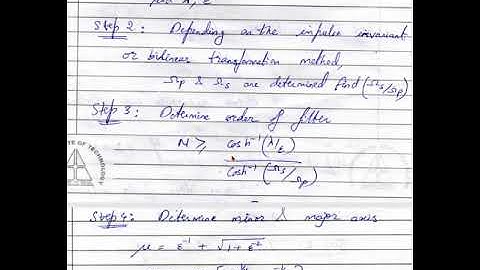 find λ, ε
Step 2: Depending on the impulse invariant
or bilinear transformation method,
Ωp & Ωs are determined find (Ωs/Ωp)
Step 3: Determine order of filter
N ≥ cosh⁻¹(λ/ε)
cosh⁻¹(Ωs/Ωp)
TE OF TECHNOLOGY
Step 4: Determine minor & major axis
μ = ε⁻¹ + √1+ε⁻²